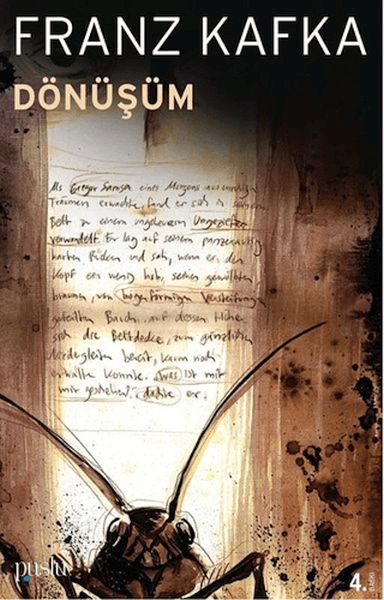 FRANZ KAFKA
DÖNÜŞÜM
Als Gregor Samsa eines Morgens aus unruhigen
Träumen erwachte, fand er sich in seinem
Bett zu einem ungeheueren Ungeziefer
verwandelt. Er lag auf seinem panzerartig
harten Rücken und sah, wenn er den
Kopf ein wenig hob, seinen gewölbten
braunen, von bogenförmigen Versteifungen
geteilten Bauch, auf dessen Höhe
sich die Bettdecke, zum gänzlichen
Niedergleiten bereit, kaum noch
erhalten konnte. Was ist mit
mir geschehen? dachte er.
puslu
4. BASKI